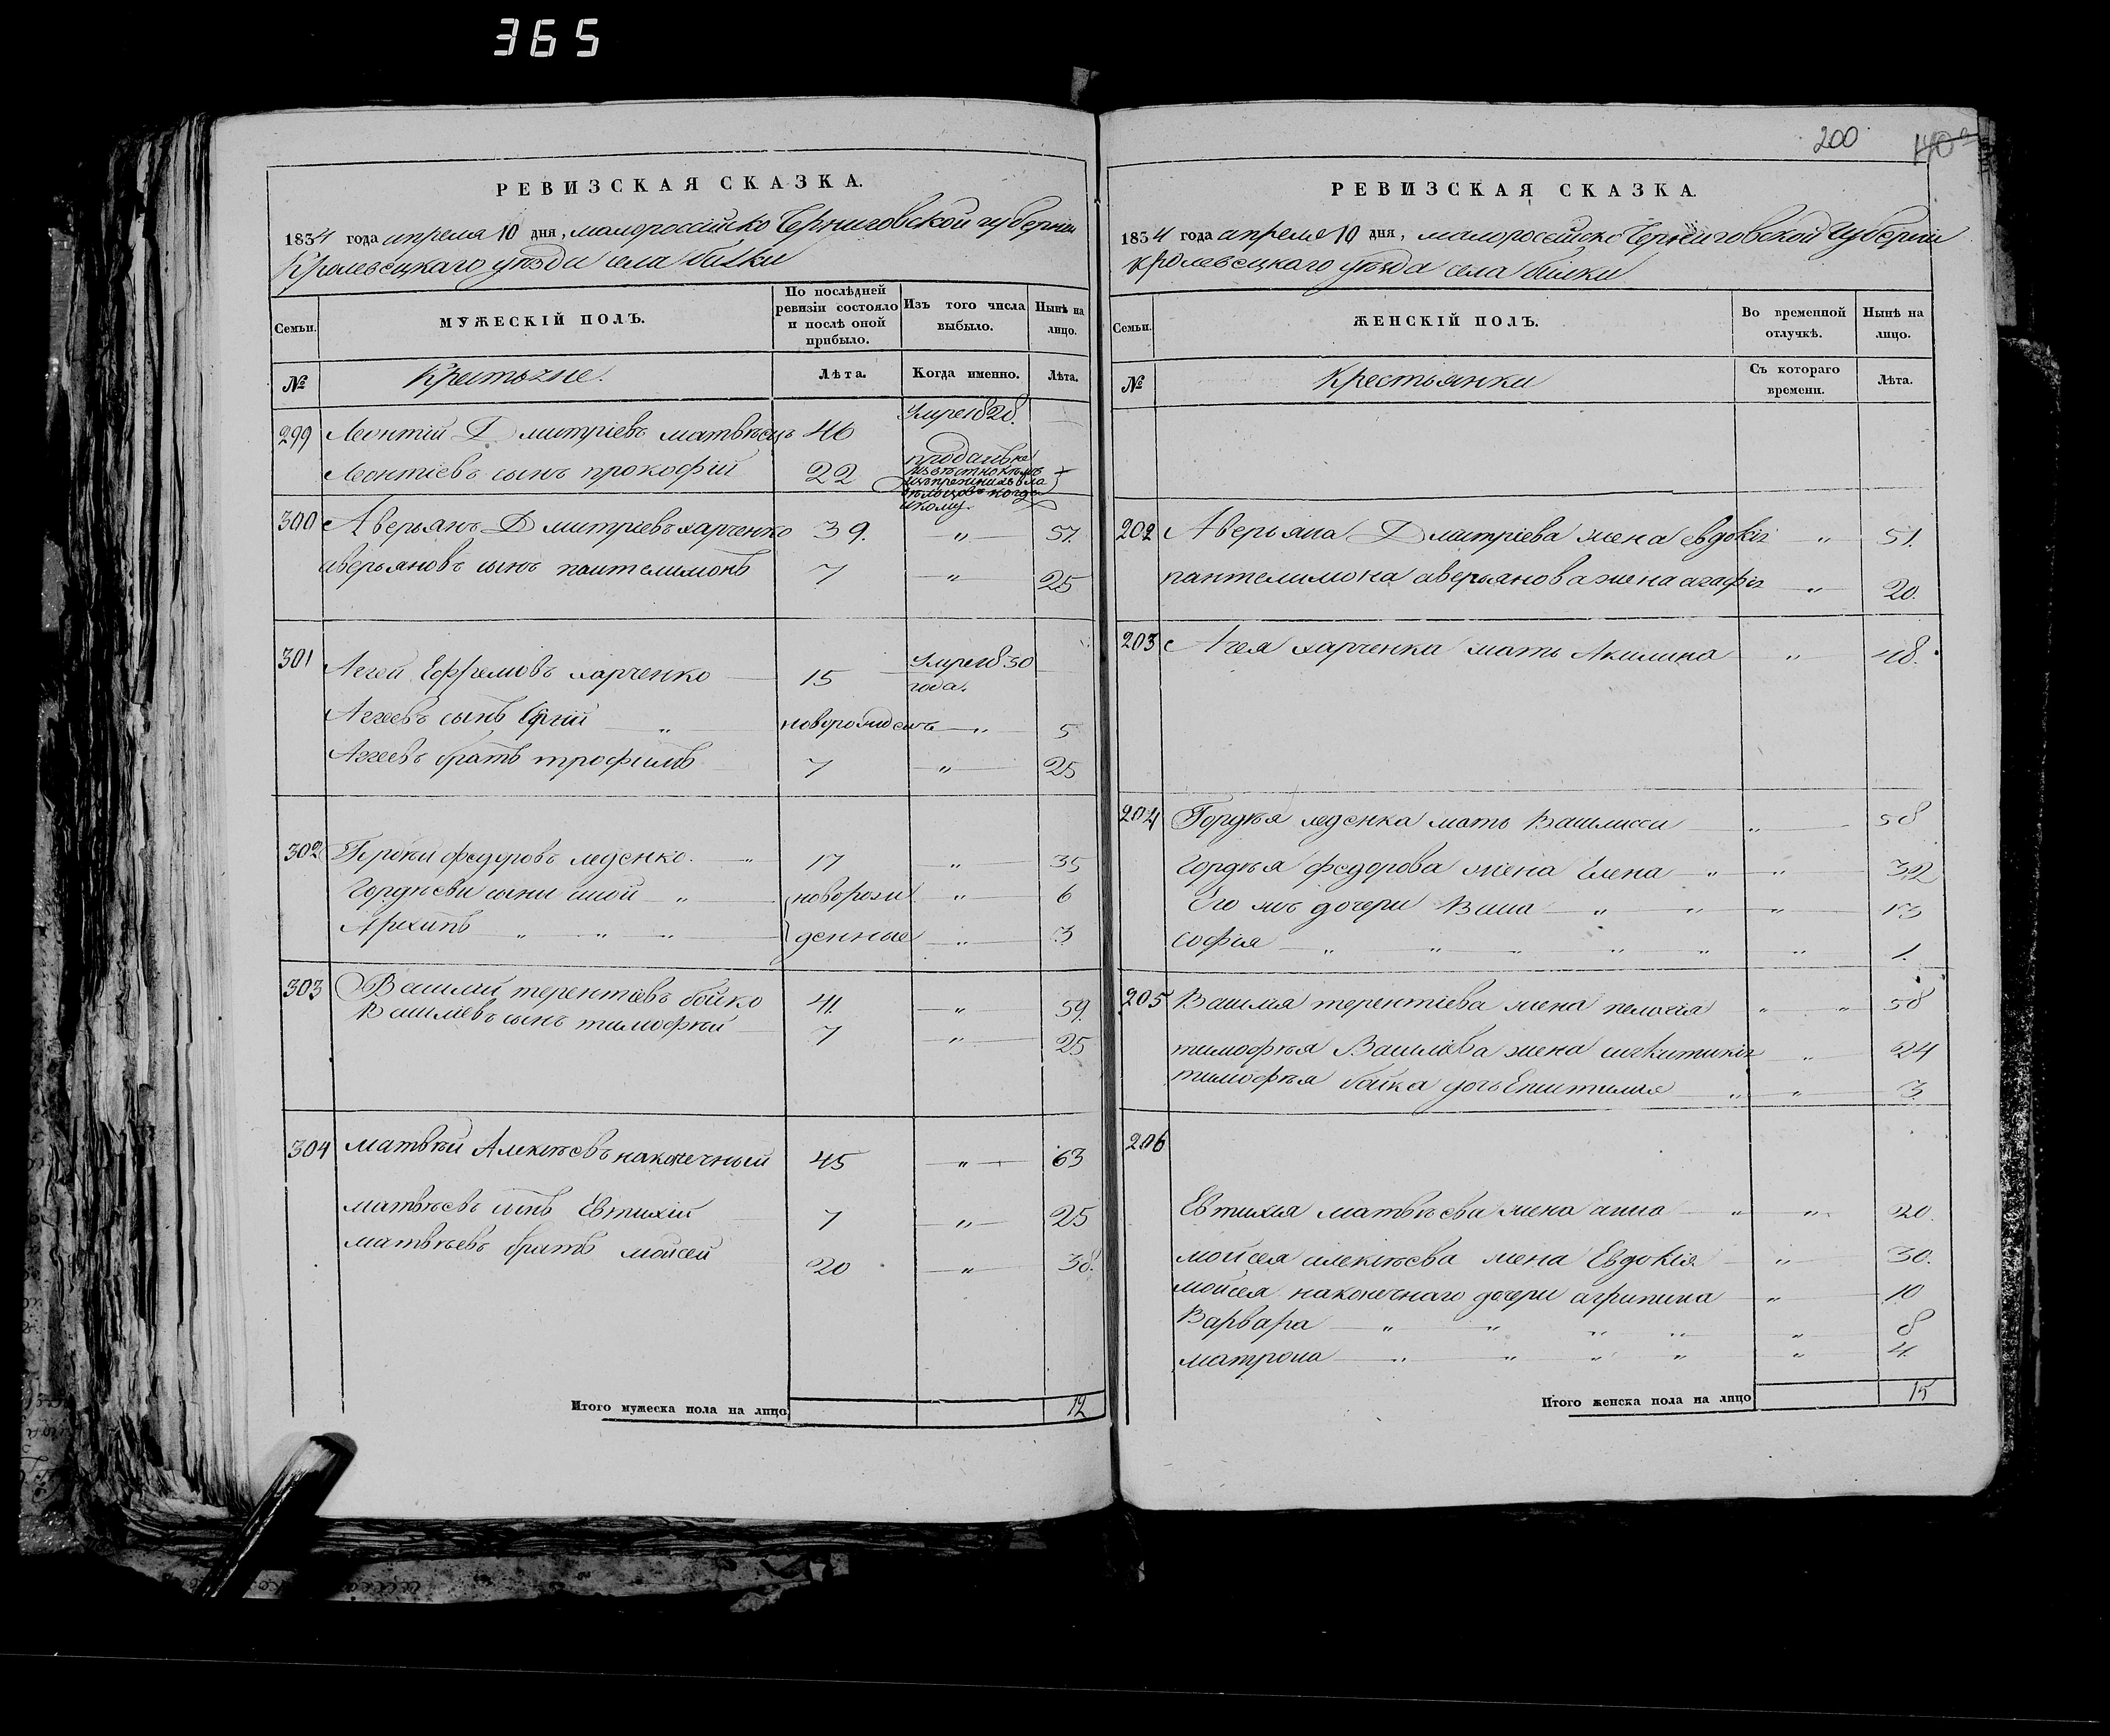 365
РЕВИЗСКАЯ СКАЗКА.
1834 года апреля 10 дня, малороссійско Черниговской губерніи
Кролевецкаго уѣзда села билки
Семьи.
МУЖЕСКІЙ ПОЛЪ.
По послѣдней ревизіи состояло и послѣ оной прибыло.
Изъ того числа выбыло.
Нынѣ на лицо.
№
Крестьяне.
Лѣта.
Когда именно.
Лѣта.
299 Леонтій Дмитріевъ матвѣецъ 46 Умре 1828.
Леонтіевъ сынъ прокофій 22 проданъ не
извѣстно кемъ
изъ прежнихъ вла
дѣльцовъ когда
и кому
300 Аверьянъ Дмитріевъ харченко 39. „ 57.
аверьяновъ сынъ пантелимонъ 7 „ 25
301 Агей Ефремовъ харченко 15 Умре 1830
года.
Агеевъ сынъ Сргій „ новорожденъ „ 5
Агеевъ братъ трофимъ 7 „ 25
302 Гордѣй федоровъ леденко „ 17 „ 35
Гордѣеви сыни „ новорож „ 6
Архипъ „ „ „ денные „ 3
303 Василій терентіевъ бойко 41. „ 59.
Василіевъ сынъ тимофѣй 7 „ 25
304 матвѣй Алексѣевъ наконечный 45 „ 63
матвѣевъ сынъ Евтихій 7 „ 25
матвѣевъ братъ мойсей 20 „ 38.
Итого мужеска пола на лицо 12
200
РЕВИЗСКАЯ СКАЗКА.
1834 года апреля 10 дня, малоросейско Черниговской Губерніи
кролевецкаго уѣзда села билки
Семьи.
ЖЕНСКІЙ ПОЛЪ.
Во временной отлучкѣ.
Нынѣ на лицо.
№
Крестьянки
Съ котораго времени.
Лѣта.
202 Аверьяна Дмитріева жена евдокія „ 51.
пантелимона аверьянова жена агафія „ 20.
203 Агея харченка мать Акилина „ 48.
204 Гордѣя леденка мать Василиса „ 58
гордѣя федорова жена Елена „ „ 32
Его жъ дочери „ „ „ 13
софія „ „ „ „ „ „ 1.
205 Василія терентіева жена пелагія „ „ 58
тимофѣя Василіева жена „ 24
тимофѣя бойка дочь Епистимия „ „ 3.
206
Евтихія матвѣева жена анна „ „ 20.
мойсея алексѣева жена Евдокія „ 30.
мойсея наконечнаго дочери агрипина „ 10
Варвара „ „ „ „ „ 8
матрона „ „ „ „ „ 4.
Итого женска пола на лицо 15